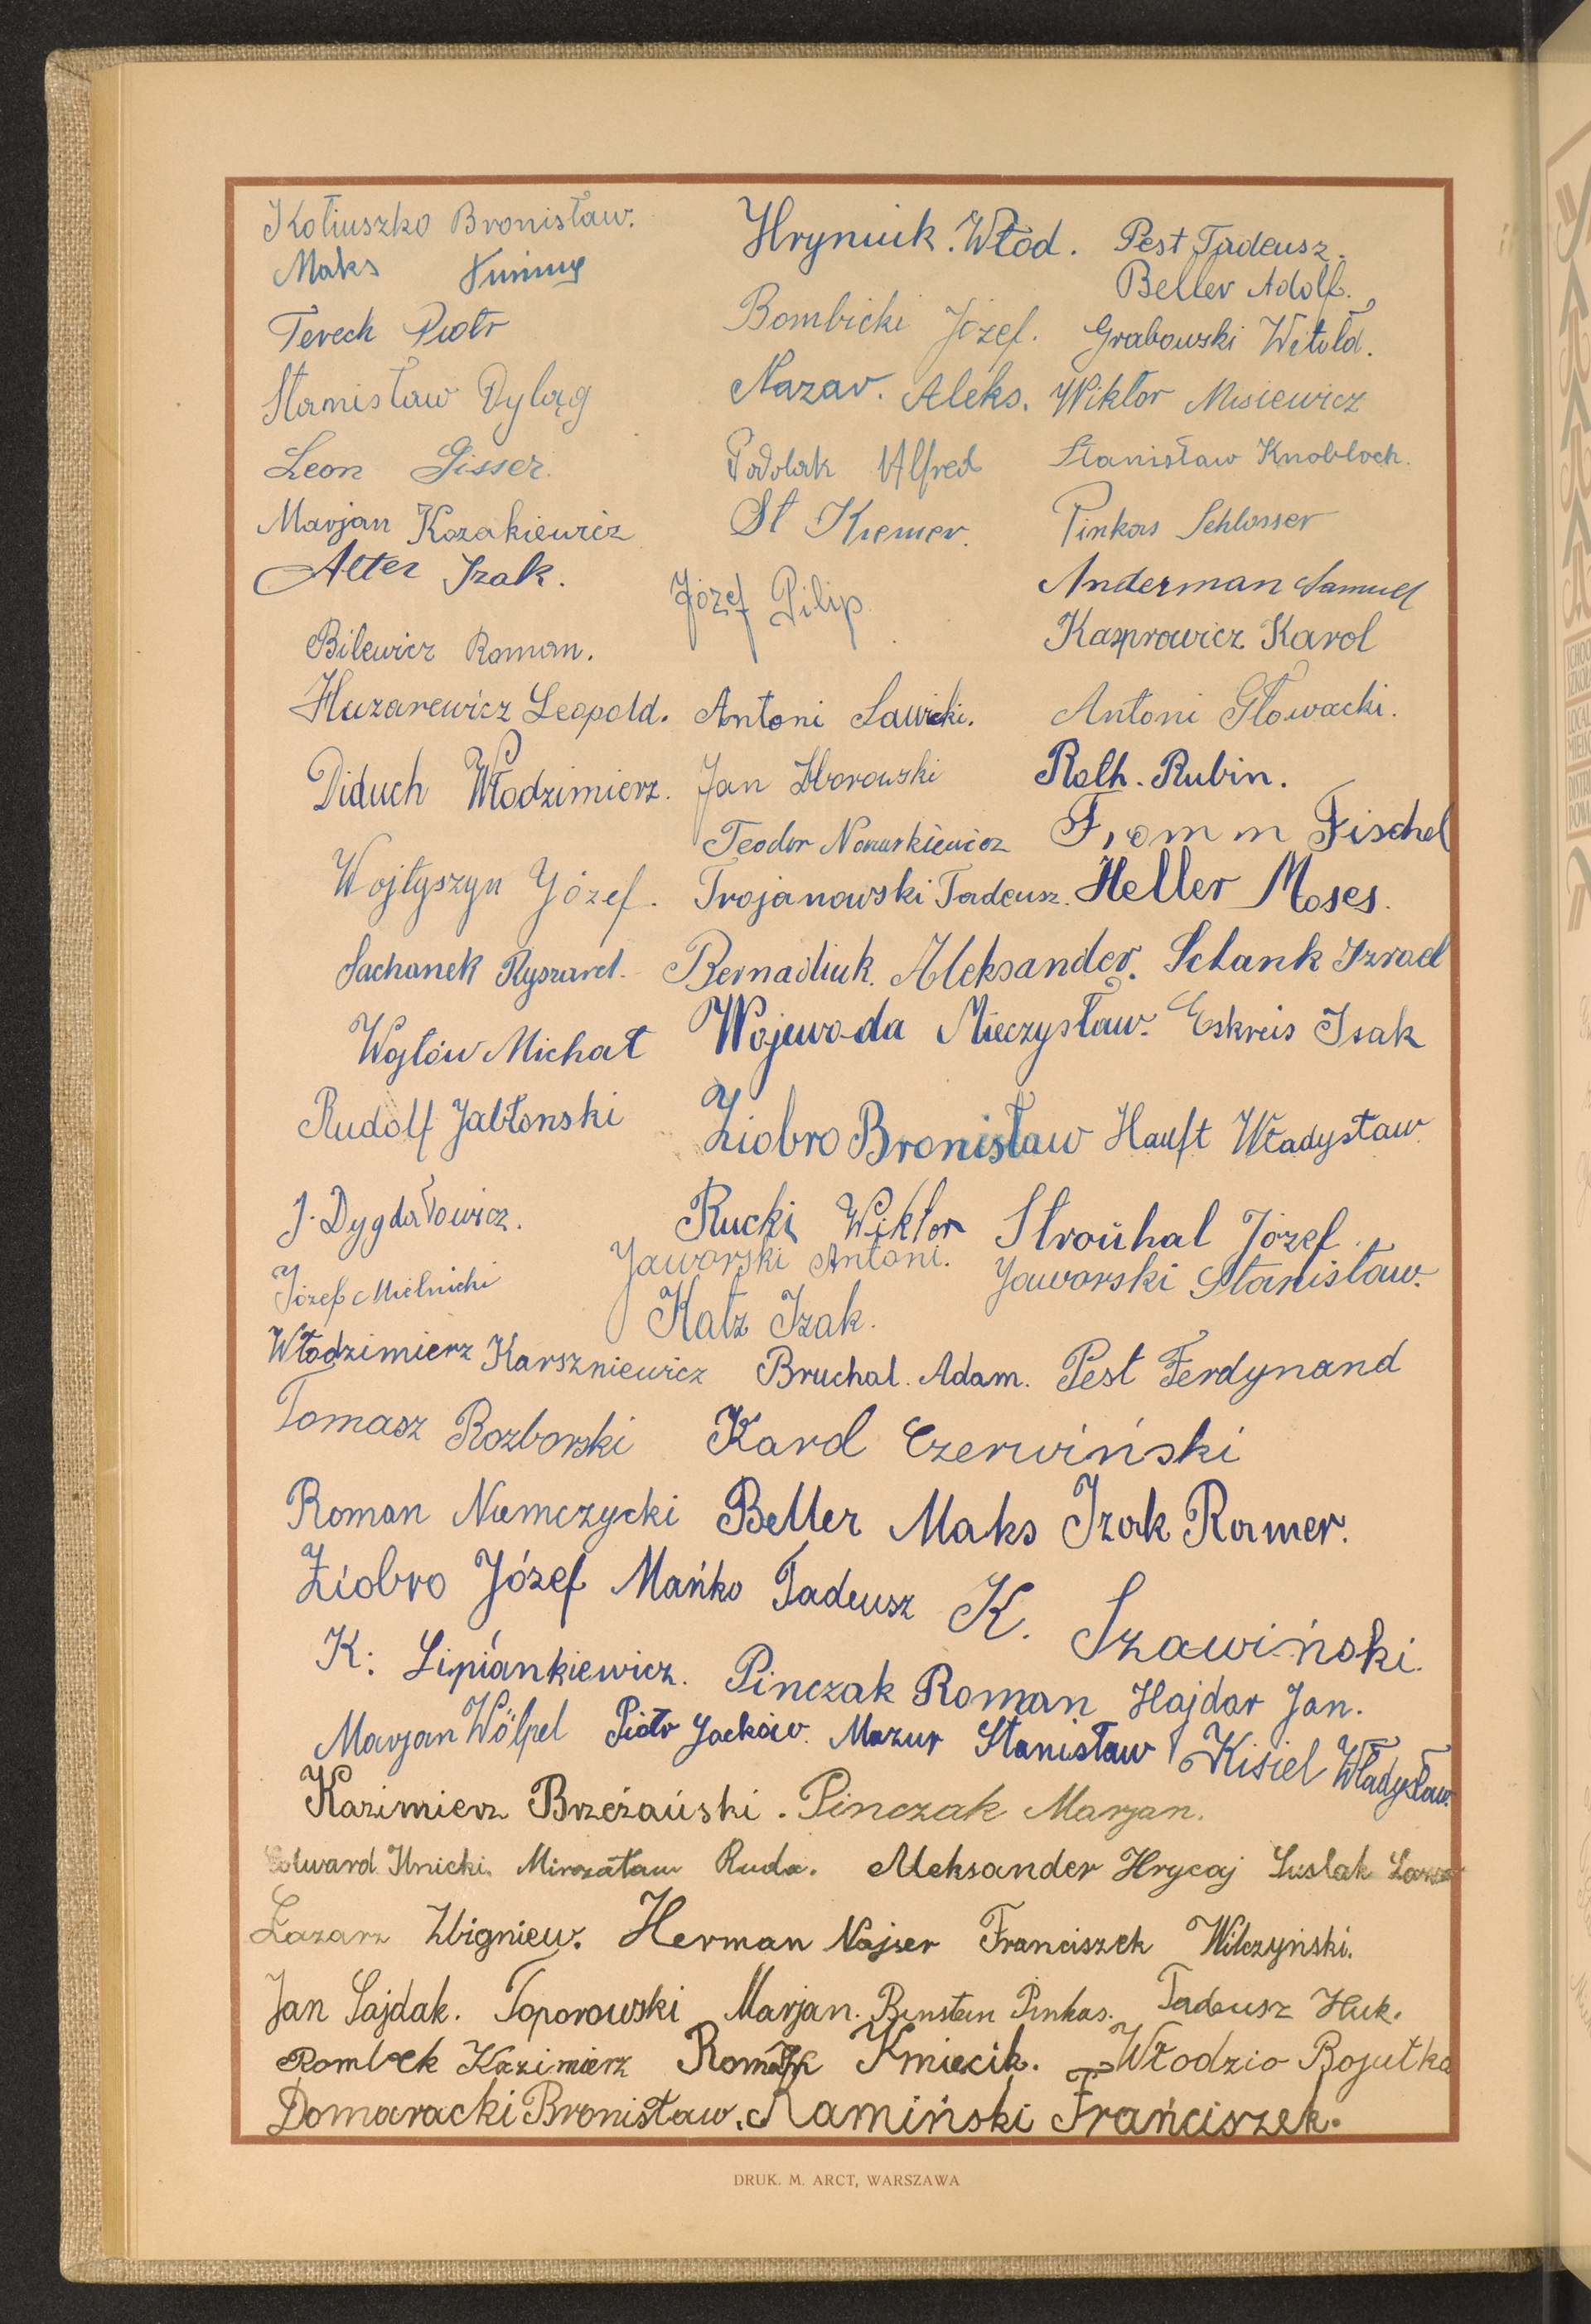 Kotiuszko Bronisław. Hryniuk. Włod. Pest Tadeusz.
Maks Beller Adolf.
Terech Piotr Bombicki Józef. Grabowski Witołd.
Stanisław Dyląg Nazar. Aleks. Wiktor Misiewicz
Leon Gisser. Podolak Alfred Stanisław Knobloch.
Marjan Kozakiewicz St Kremer. Pinkas Schlosser
Alter Izak. Józef Pilip. Anderman Samuel
Bilewicz Roman. Kasprowicz Karol
Huzarewicz Leopold. Antoni Sawicki. Antoni Głowacki.
Diduch Włodzimierz. Jan Zborowski Roth. Rubin.
Teodor Fromm Fischel
Wojtyszyn Józef. Trojanowski Tadeusz. Heller Moses.
Sachanek Ryszard. Bernadiuk. Aleksander. Schank Izrael
Wojtów Michał Wojewoda Mieczysław. Eskreis Isak
Rudolf Jabłonski Ziobro Bronisław Hauft Władysław.
J. Dygdałowicz. Rucki Wiktor Stroúhal Józef.
Józef Mielnicki Jaworski Antoni. Jaworski Stanisław.
Katz Izak.
Włodzimierz Karszniewicz Bruchal. Adam. Pest Ferdynand
Tomasz Rozborski Karol Czerwiński
Roman Niemczycki Beller Maks Izak Ramer.
Ziobro Józef Mańko Tadeusz K. Szawiński.
K. Lipiánkiewicz. Pinczak Roman Hajdar Jan.
Marjan Wölpel Piotr Jacków. Mazur Stanisław Kisiel Władysław.
Kazimierz Brzeżański. Pinczak Marjan.
Edward Ilnicki. Mirosław Ruda. Aleksander Hrycaj
Łazarz Zbigniew. Herman Najser Franciszek Wilczyński.
Jan Sajdak. Toporowski Marjan. Binstein Pinkas. Tadeusz Huk.
Rombek Kazimierz Roman Kmiecik. Włodzio Bojutka
Domaracki Bronisław. Kamiński Frańciszek.
DRUK. M. ARCT, WARSZAWA